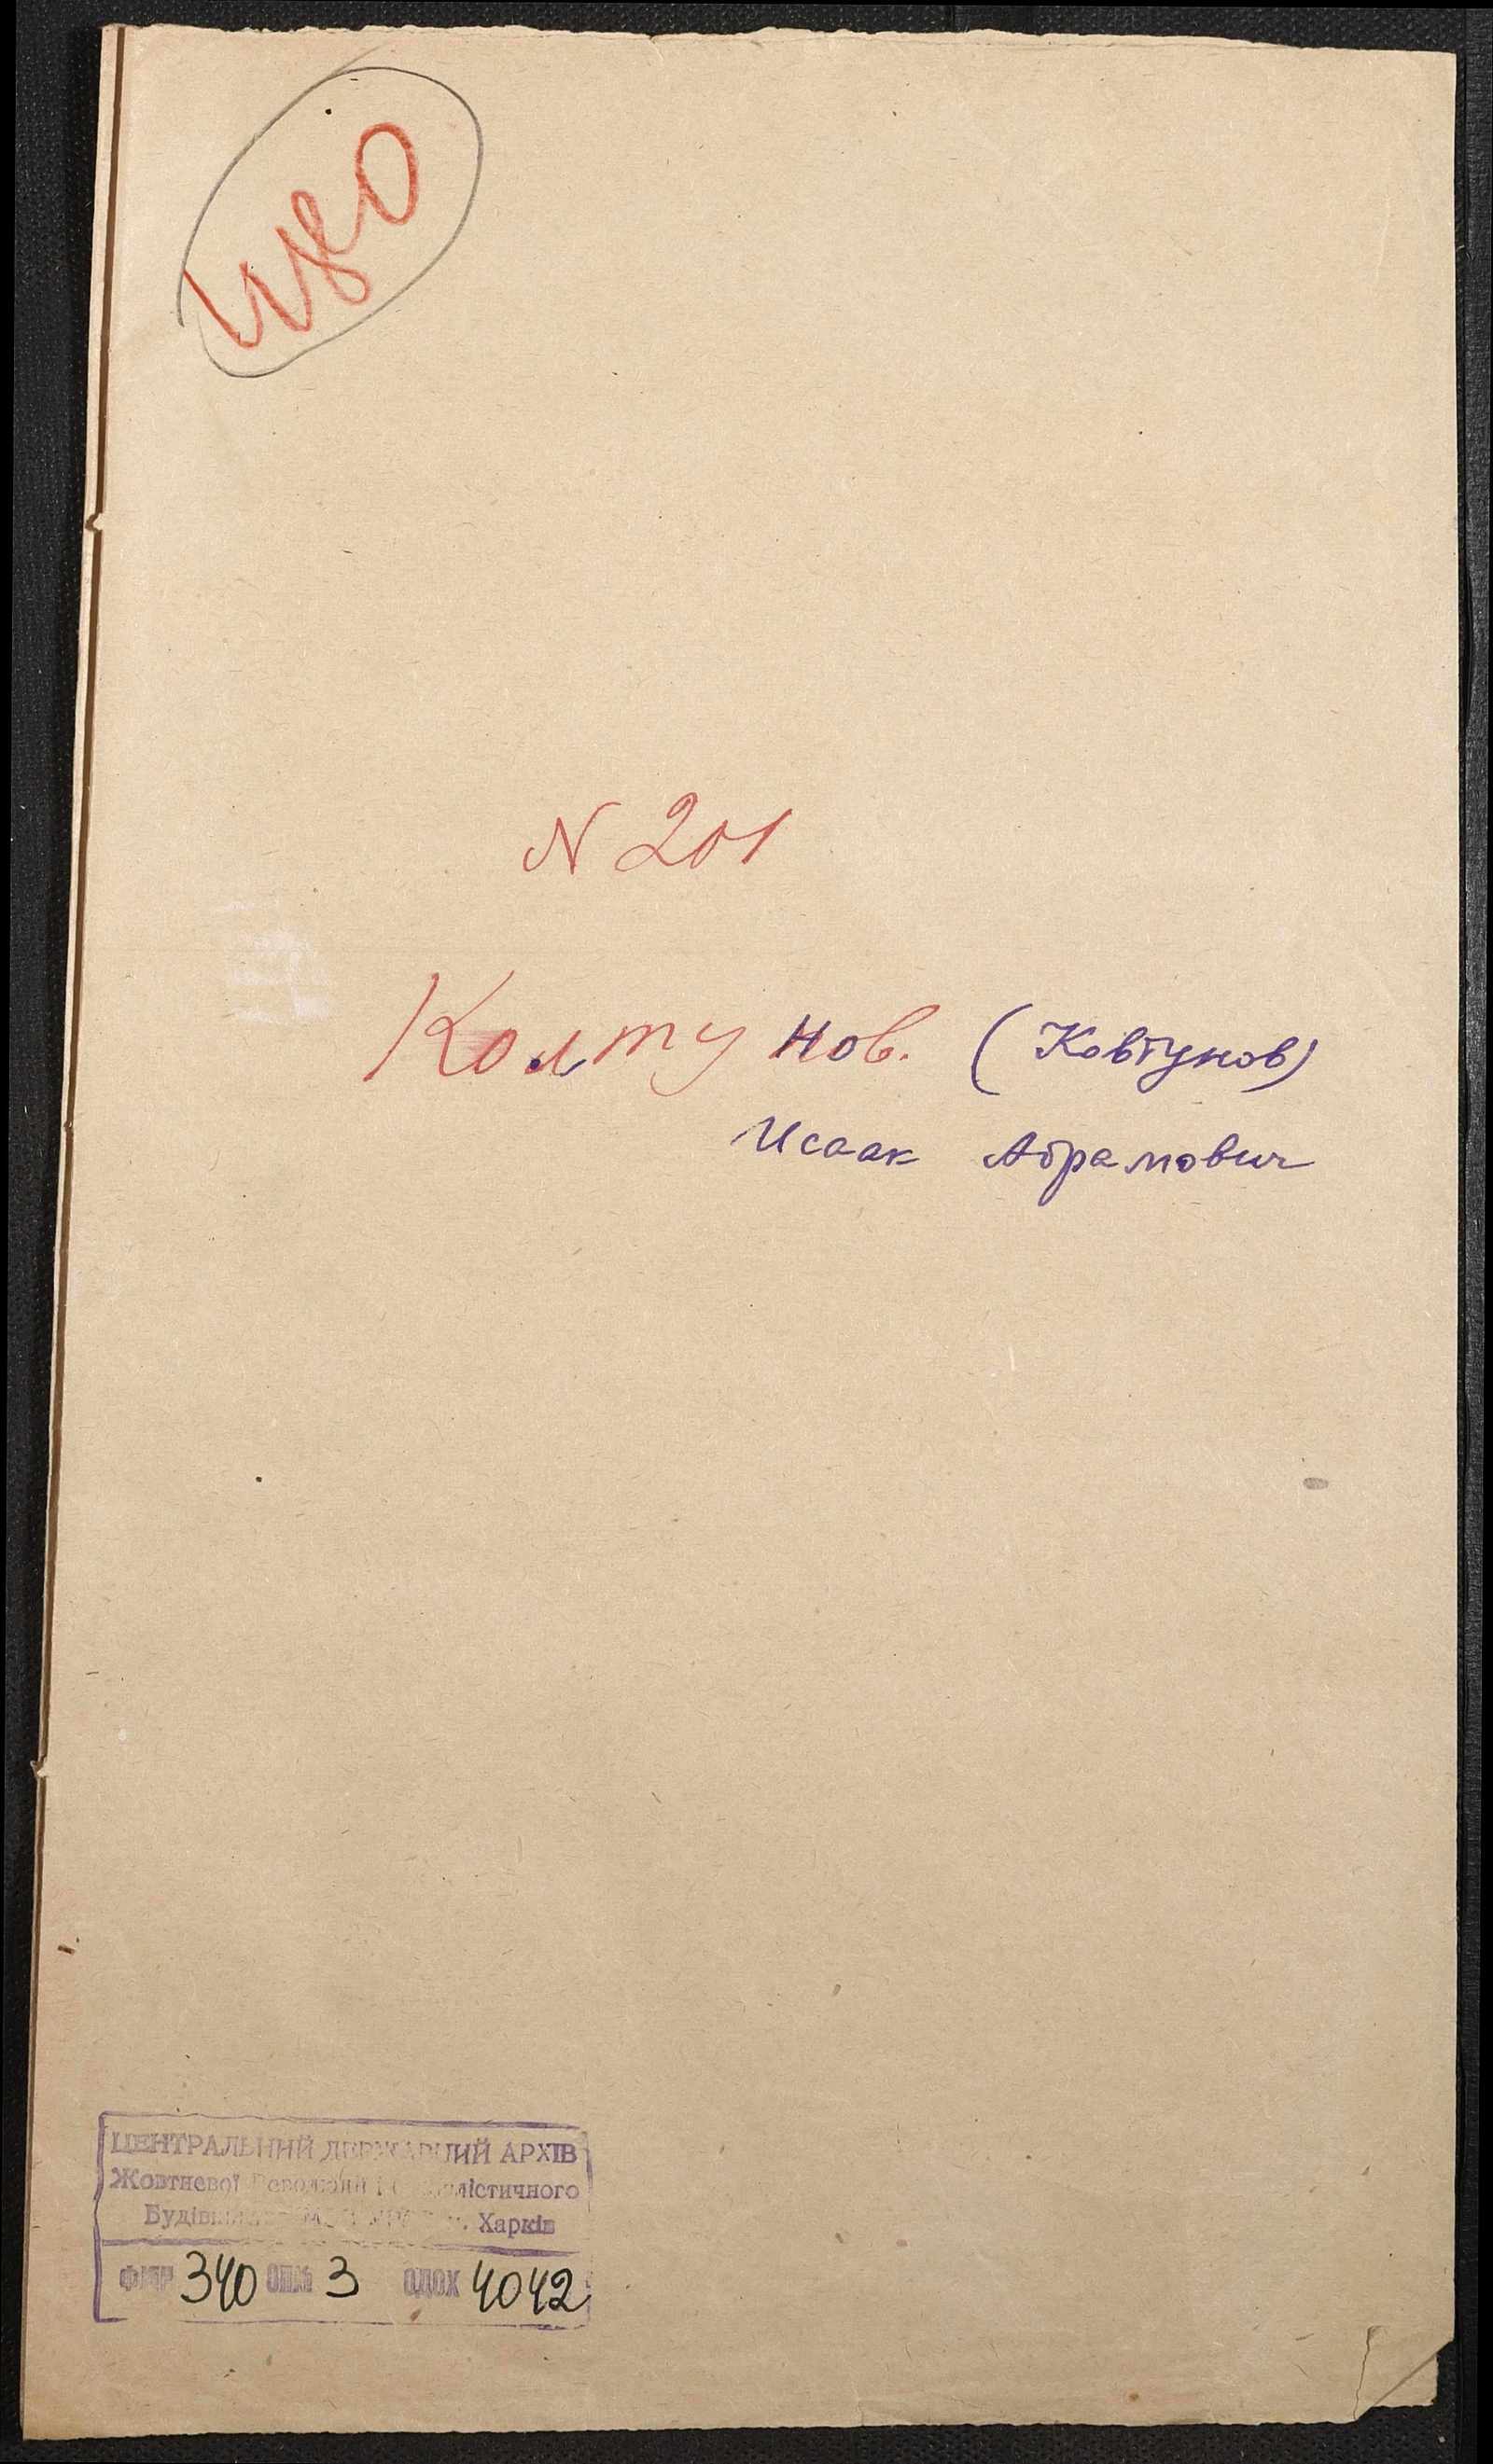 480
N 201
Колтунов. (Ковтунов)
Исаак Абрамович
ЦЕНТРАЛЬНИЙ ДЕРЖАВНИЙ АРХІВ
Жовтневої Революції і
Харків
ФОНД 340 ОПИС 3 ОДОХ 4042